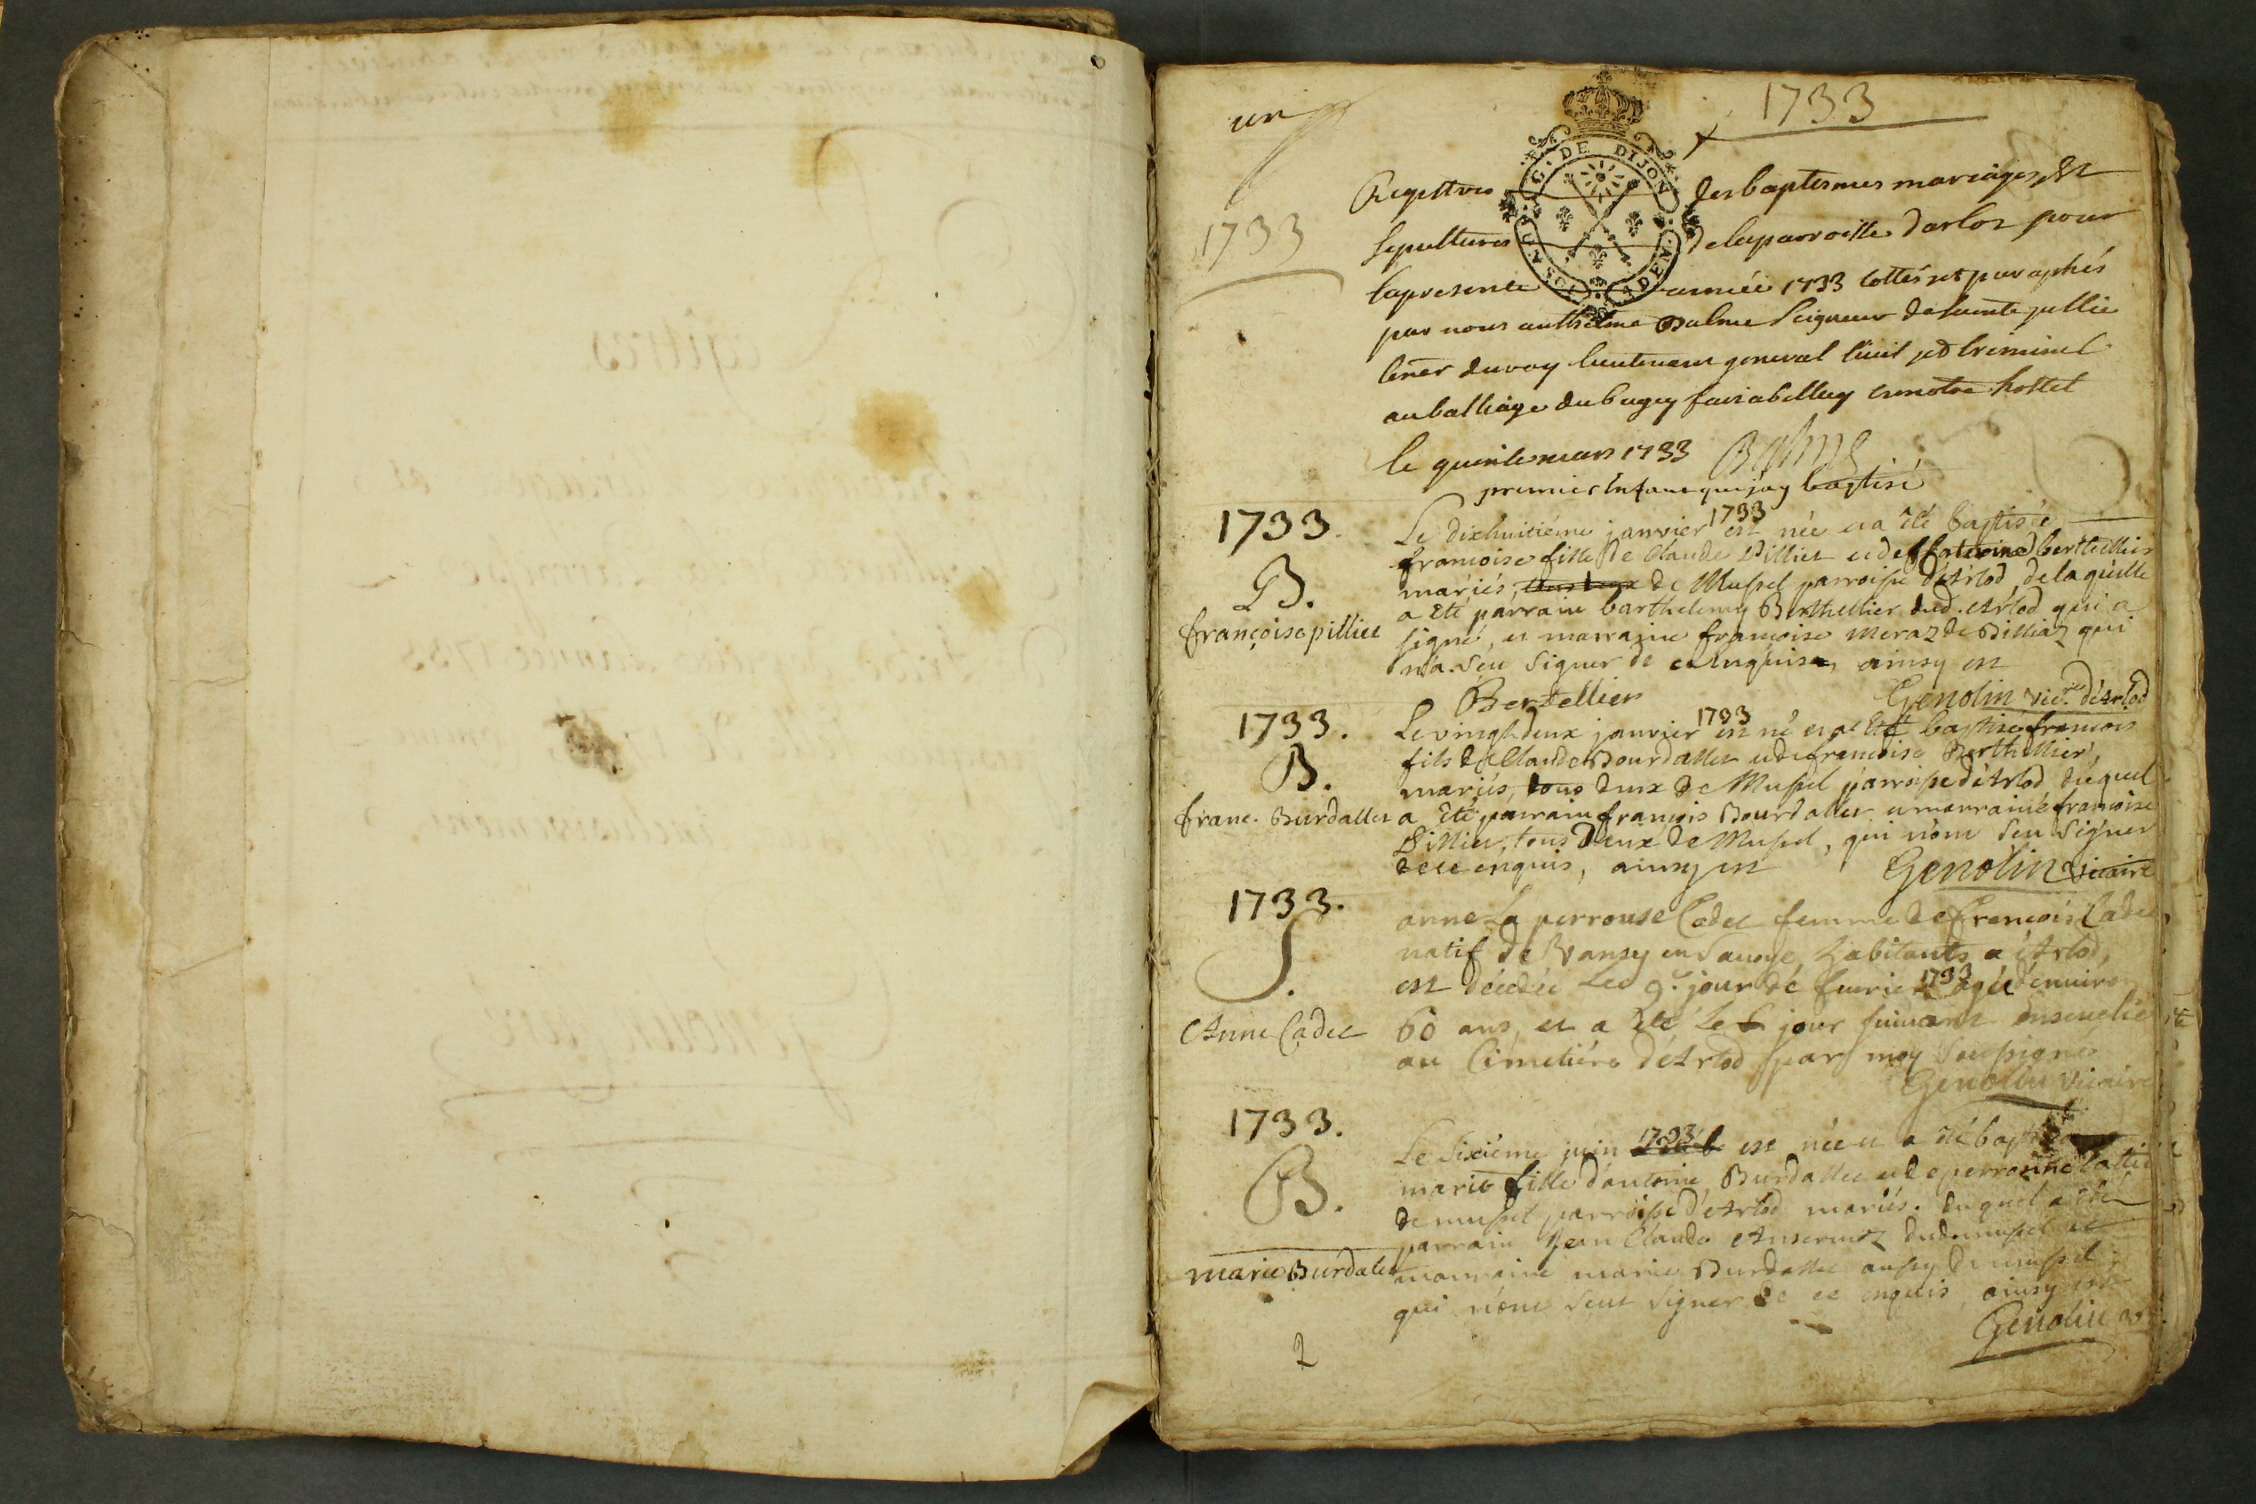 un
1733
1733
G. DE DIJON
Registres des baptesmes mariages et
sepultures de la parroisse darloz pour
la presente année 1733 cottés et paraphés
par nous anthelme Balme Seigneur de sainte jullie
coner du roy lieutenant general civil et criminel
au balliage du bugey fait a belley en notre hostel
le quinze mars 1733 Balme
premier enfant que jay baptisé
1733.
B.
françoise pillier
Le dixhuitiéme janvier 1733 est née et a été baptisée
francoise fille de Claude Pillier et de Caterine berthellier
mariés, de Mussel parroisse d'Arlod, de laquelle
a été parrain barthelemy Berthellier dud. Arlod qui a
signé, et marraine francoise meraz de Billiaz qui
n'a seu signer de ce enquise, ainsy est
Bertellier Genolin vic.re d'Arlod
1733.
B.
franc. Burdallet
Le vingt deux janvier 1733 est né et a été baptisé francois
fils de Claude Bourdallet et de francoise Berthellier,
mariés, tous deux de Mussel parroisse d'Arlod duquel
a été parrain françois Bourdallet et marraine francoise
Pillier, tous deux de Mussel, qui n'ont seu signer
de ce enquis, ainsy est Genolin vicaire
1733.
S.
Anne Cadet
anne La perrouse Cadet femme de François Cadet
natif de Vansy en Savoye, habitants a Arlod,
est décédée Le 9.e jour de fevrier 1733 agée d'enviro
60 ans, et a été le jour suivant ensevelie
au Cimetiére d'Arlod par moy soussigné
Genolin vicaire
1733.
B.
marie Burdalet
Le Sixiéme juin 1733 est née et a été baptisée
marie fille d'antoine Burdallet et de perronne
de mussel parroisse d'Arlod mariés. duquel a été
parrain Jean Claude Ansermoz dud. mussel et
marraine marie Burdallet aussy de mussel
qui n'ont seut signer de ce enquis, ainsy est
Genolin
2